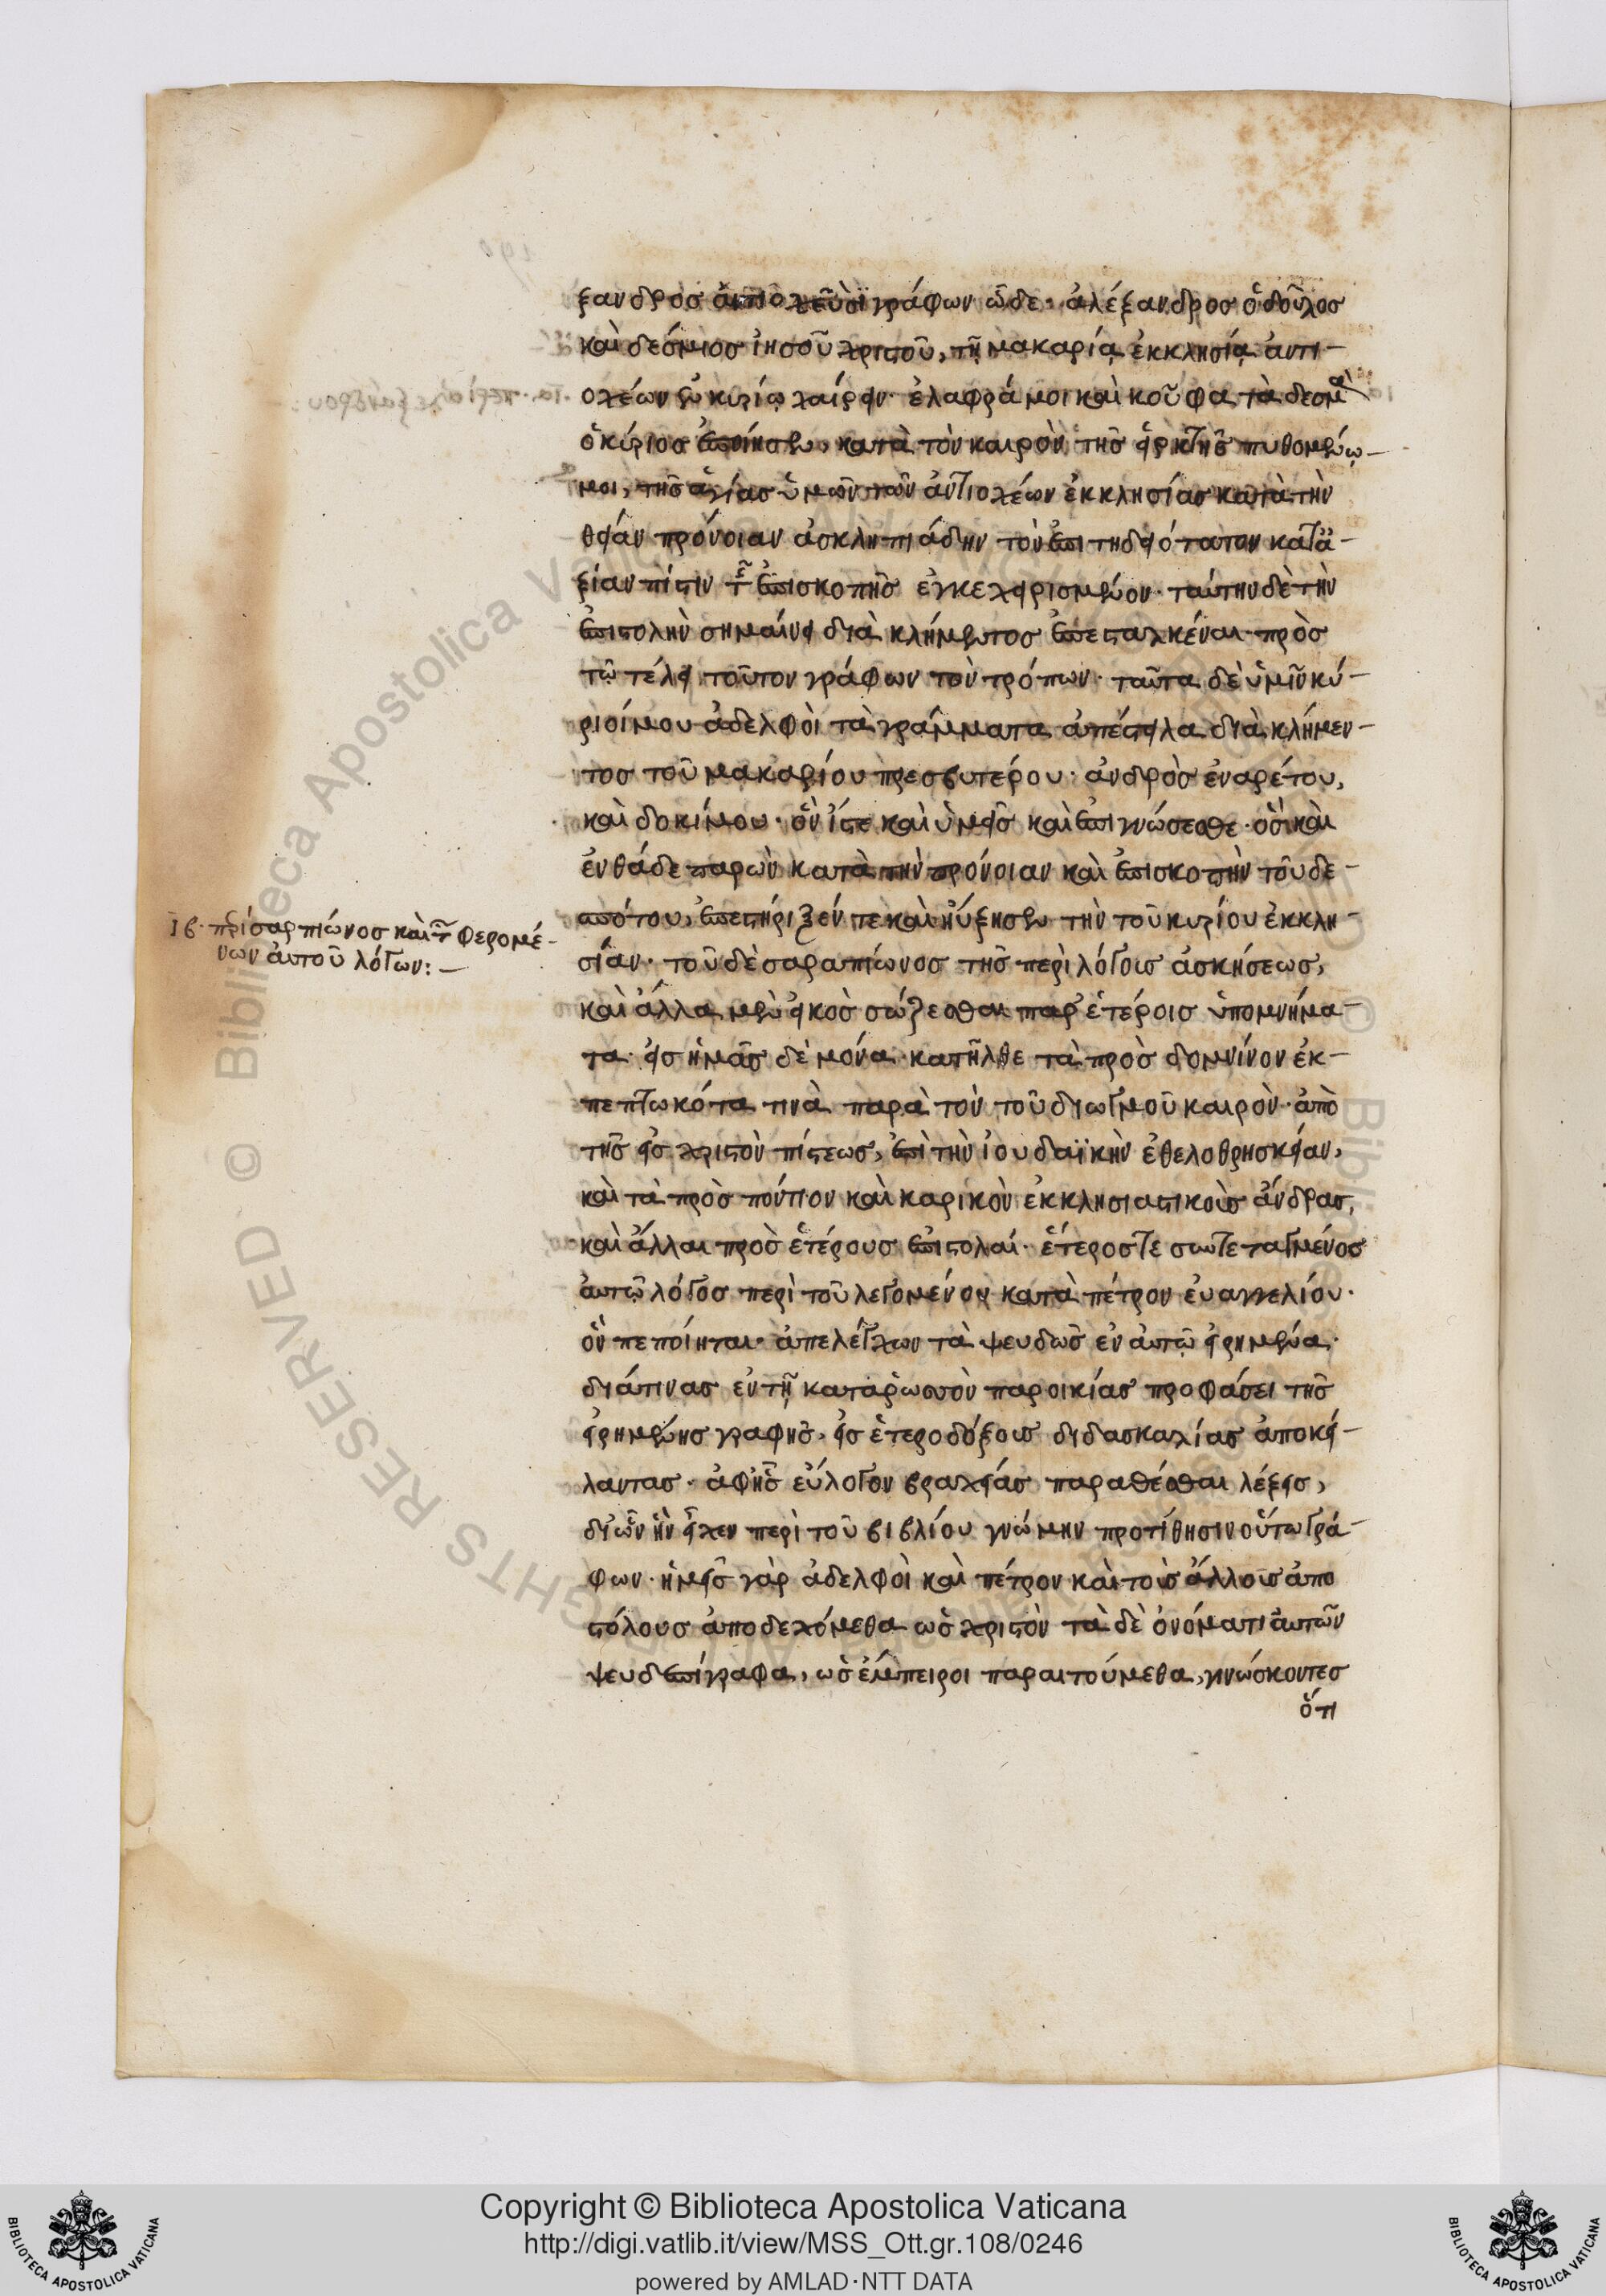 ξανδρος ἀντιοχεῦσϊ γράφων ὧδε· ἀλέξανδρος ὁ δοῦλος
καὶ δεσμιος ἰησοῦ χριστοῦ, τῇ μακαρίᾳ ἐκκλησίᾳ ἀντι-
οχέων ἐν κυρίῳ χαίρειν· ἐλαφρά μοι καὶ κοῦφα τὰ δεσμὰ
ὁ κύριος ἐποίησεν, κατὰ τὸν καιρὸν τῆς εἱρκτῆς πυθομένῳ-
μοι, τῆς ἁγίας ὑμῶν τῶν ἀντιοχέων ἐκκλησίας κατὰ τὴν
θείαν πρόνοιαν ἀσκληπιάδην τὸν ἐπιτηδειότατον κατ' ἀ-
ξίαν πίστιν τῆς ἐπισκοπῆς ἐγκεχειρισμένον· ταύτην δὲ τὴν
ἐπιστολὴν σημαίνει διὰ κλήμεντος ἐπεσταλκέναι· πρὸς
τῷ τέλει τοῦτον γράφων τὸν τρόπων· ταῦτα δὲ ὑμῖν κύ-
ριοί μου ἀδελφοὶ τὰ γράμματα ἀπέστειλα διὰ κλήμεν-
τος τοῦ μακαρίου πρεσβυτέρου· ἀνδρὸς ἐναρέτου,
καὶ δοκίμου· ὃν ἴστε καὶ ὑμεῖς καὶ ἐπιγνώσεσθε· ὃς καὶ
ἐνθάδε παρὼν κατὰ τὴν πρόνοιαν καὶ ἐπισκοπὴν τοῦ δε-
σπότου, ἐπεστήριξέν τε καὶ ηὔξησεν τὴν τοῦ κυρίου ἐκκλη-
ιβ· περὶ σαρπιώνος καὶ τῶν φερομέ-
νων αὐτοῦ λόγων:-
σίαν· τοῦ δὲ σαραπίωνος τῆς περὶ λόγους ἀσκήσεως,
καὶ ἄλλα μὲν εἰκὸς σώζεσθαι παρ' ἑτέροις ὑπομνήμα-
τα· εἰς ἡμᾶς δὲ μόνα κατῆλθε τὰ πρὸς δομνίνον ἐκ-
πεπτωκότα τινὰ παρὰ τὸν τοῦ διωγμοῦ καιρὸν· ἀπὸ
τῆς εἰς χριστὸν πίστεως, ἐπὶ τὴν ἰουδαϊκὴν ἐθελοθρησκείαν,
καὶ τὰ πρὸς πόντιον καὶ καρικὸν ἐκκλησιαστικοὺς ἄνδρας,
καὶ ἄλλαι πρὸς ἑτέρους ἐπιστολαί· ἕτερος τε συντεταγμένος
αὐτῷ λόγος περὶ τοῦ λεγομένου κατὰ πέτρον εὐαγγελίου·
ὃν πεποίηται· ἀπελέγχων τὰ ψευδῶς ἐν αὐτῷ εἰρημένα·
διά τινας ἐν τῇ κατὰ ῥωσσὸν παροικίας προφάσει τῆς
εἰρημένης γραφῆς, εἰς ἑτεροδόξους διδασκαλίας ἀποκεί-
λαντας· ἀφ' ἧς εὔλογον βραχείας παραθέσθαι λέξεις,
δι' ὧν ἣν εἶχεν περὶ τοῦ βιβλίου γνώμην προτίθησιν οὕτω γρά-
φων· ἡμεῖς γὰρ ἀδελφοὶ καὶ πέτρον καὶ τοὺς ἄλλους ἀπο
στόλους ἀποδεχόμεθα ὡς χριστὸν τὰ δὲ ὀνόματι αὐτῶν
ψευδεπίγραφα, ὡς ἔμπειροι παραιτούμεθα, γινώσκοντες
ὅτι
Copyright © Biblioteca Apostolica Vaticana
http://digi.vatlib.it/view/MSS_Ott.gr.108/0246
powered by AMLAD·NTT DATA